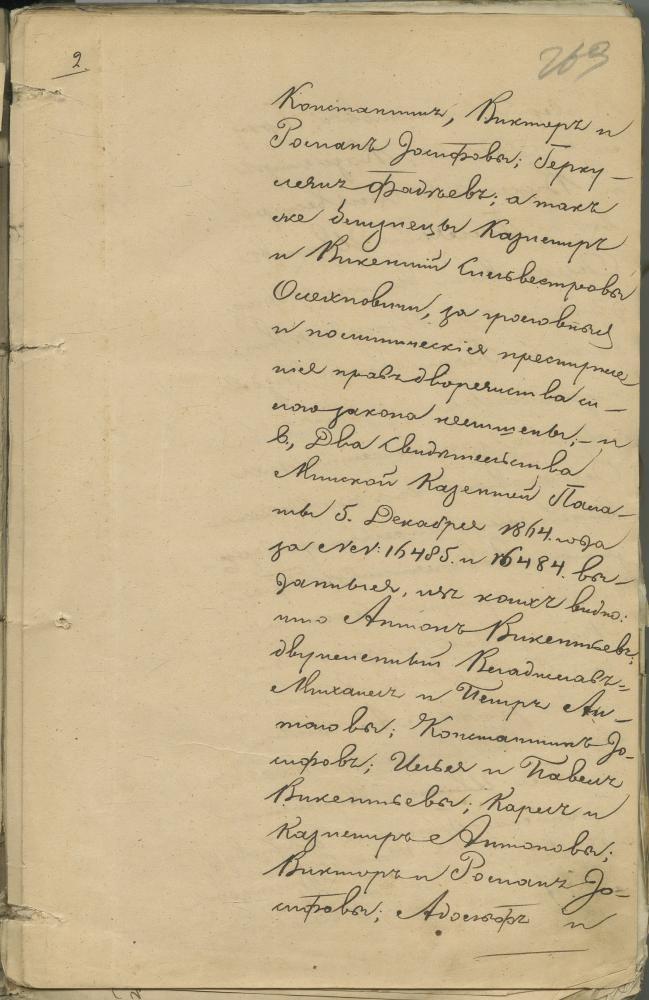 2
263
Константинъ, Викторъ и
Романъ Іосифовы; Герку-
лянъ Фадѣевъ; а такъ
же близнецы Казимiръ
и Викентій Сильвестровы
Олехновичи, за уголовныя
и политическія преступле-
нія правъ дворянства си-
лою закона не лишены; - и
в., Два Свидѣтельства
Минской Казенной Пала-
ты 5. Декабря 1864. года
за №№: 16485. и 16484. вы-
данныя, изъ коихъ видно:
что Антонъ Викентьевъ;
двуименный Владиславъ=
Михаилъ и Петръ Ан-
тоновы; Константинъ Іо-
сифовъ; Илья и Павелъ
Викентьевы; Карлъ и
Казимiръ Антоновы;
Викторъ и Романъ Іо-
сифовы; Адольфъ и